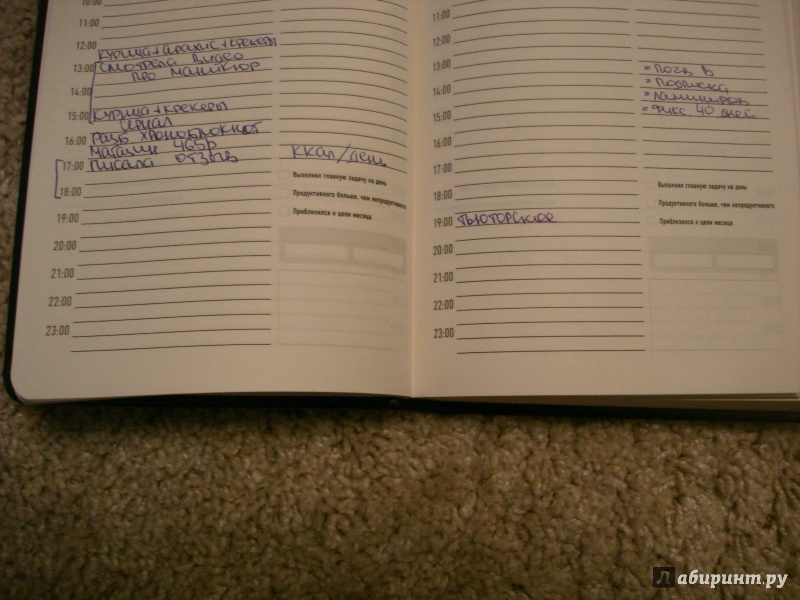 10:00
11:00
12:00
курица+арахис+крекеры
13:00 смотрела видео
про маникюр
14:00
15:00 курица+крекеры
сериал
16:00 разб хроноблокнот
магазин 465р
17:00 писала отзыв
18:00
19:00
20:00
21:00
22:00
23:00
ккал/день
Выполнил главную задачу на день
Продуктивного больше, чем непродуктивного
Приблизился к цели месяца
11:00
12:00
13:00
14:00
15:00
16:00
17:00
18:00
19:00 тьюторское
20:00
21:00
22:00
23:00
подписка
фикс 40 дней
Выполнил главную задачу на день
Продуктивного больше, чем непродуктивного
Приблизился к цели месяца
Лабиринт.ру